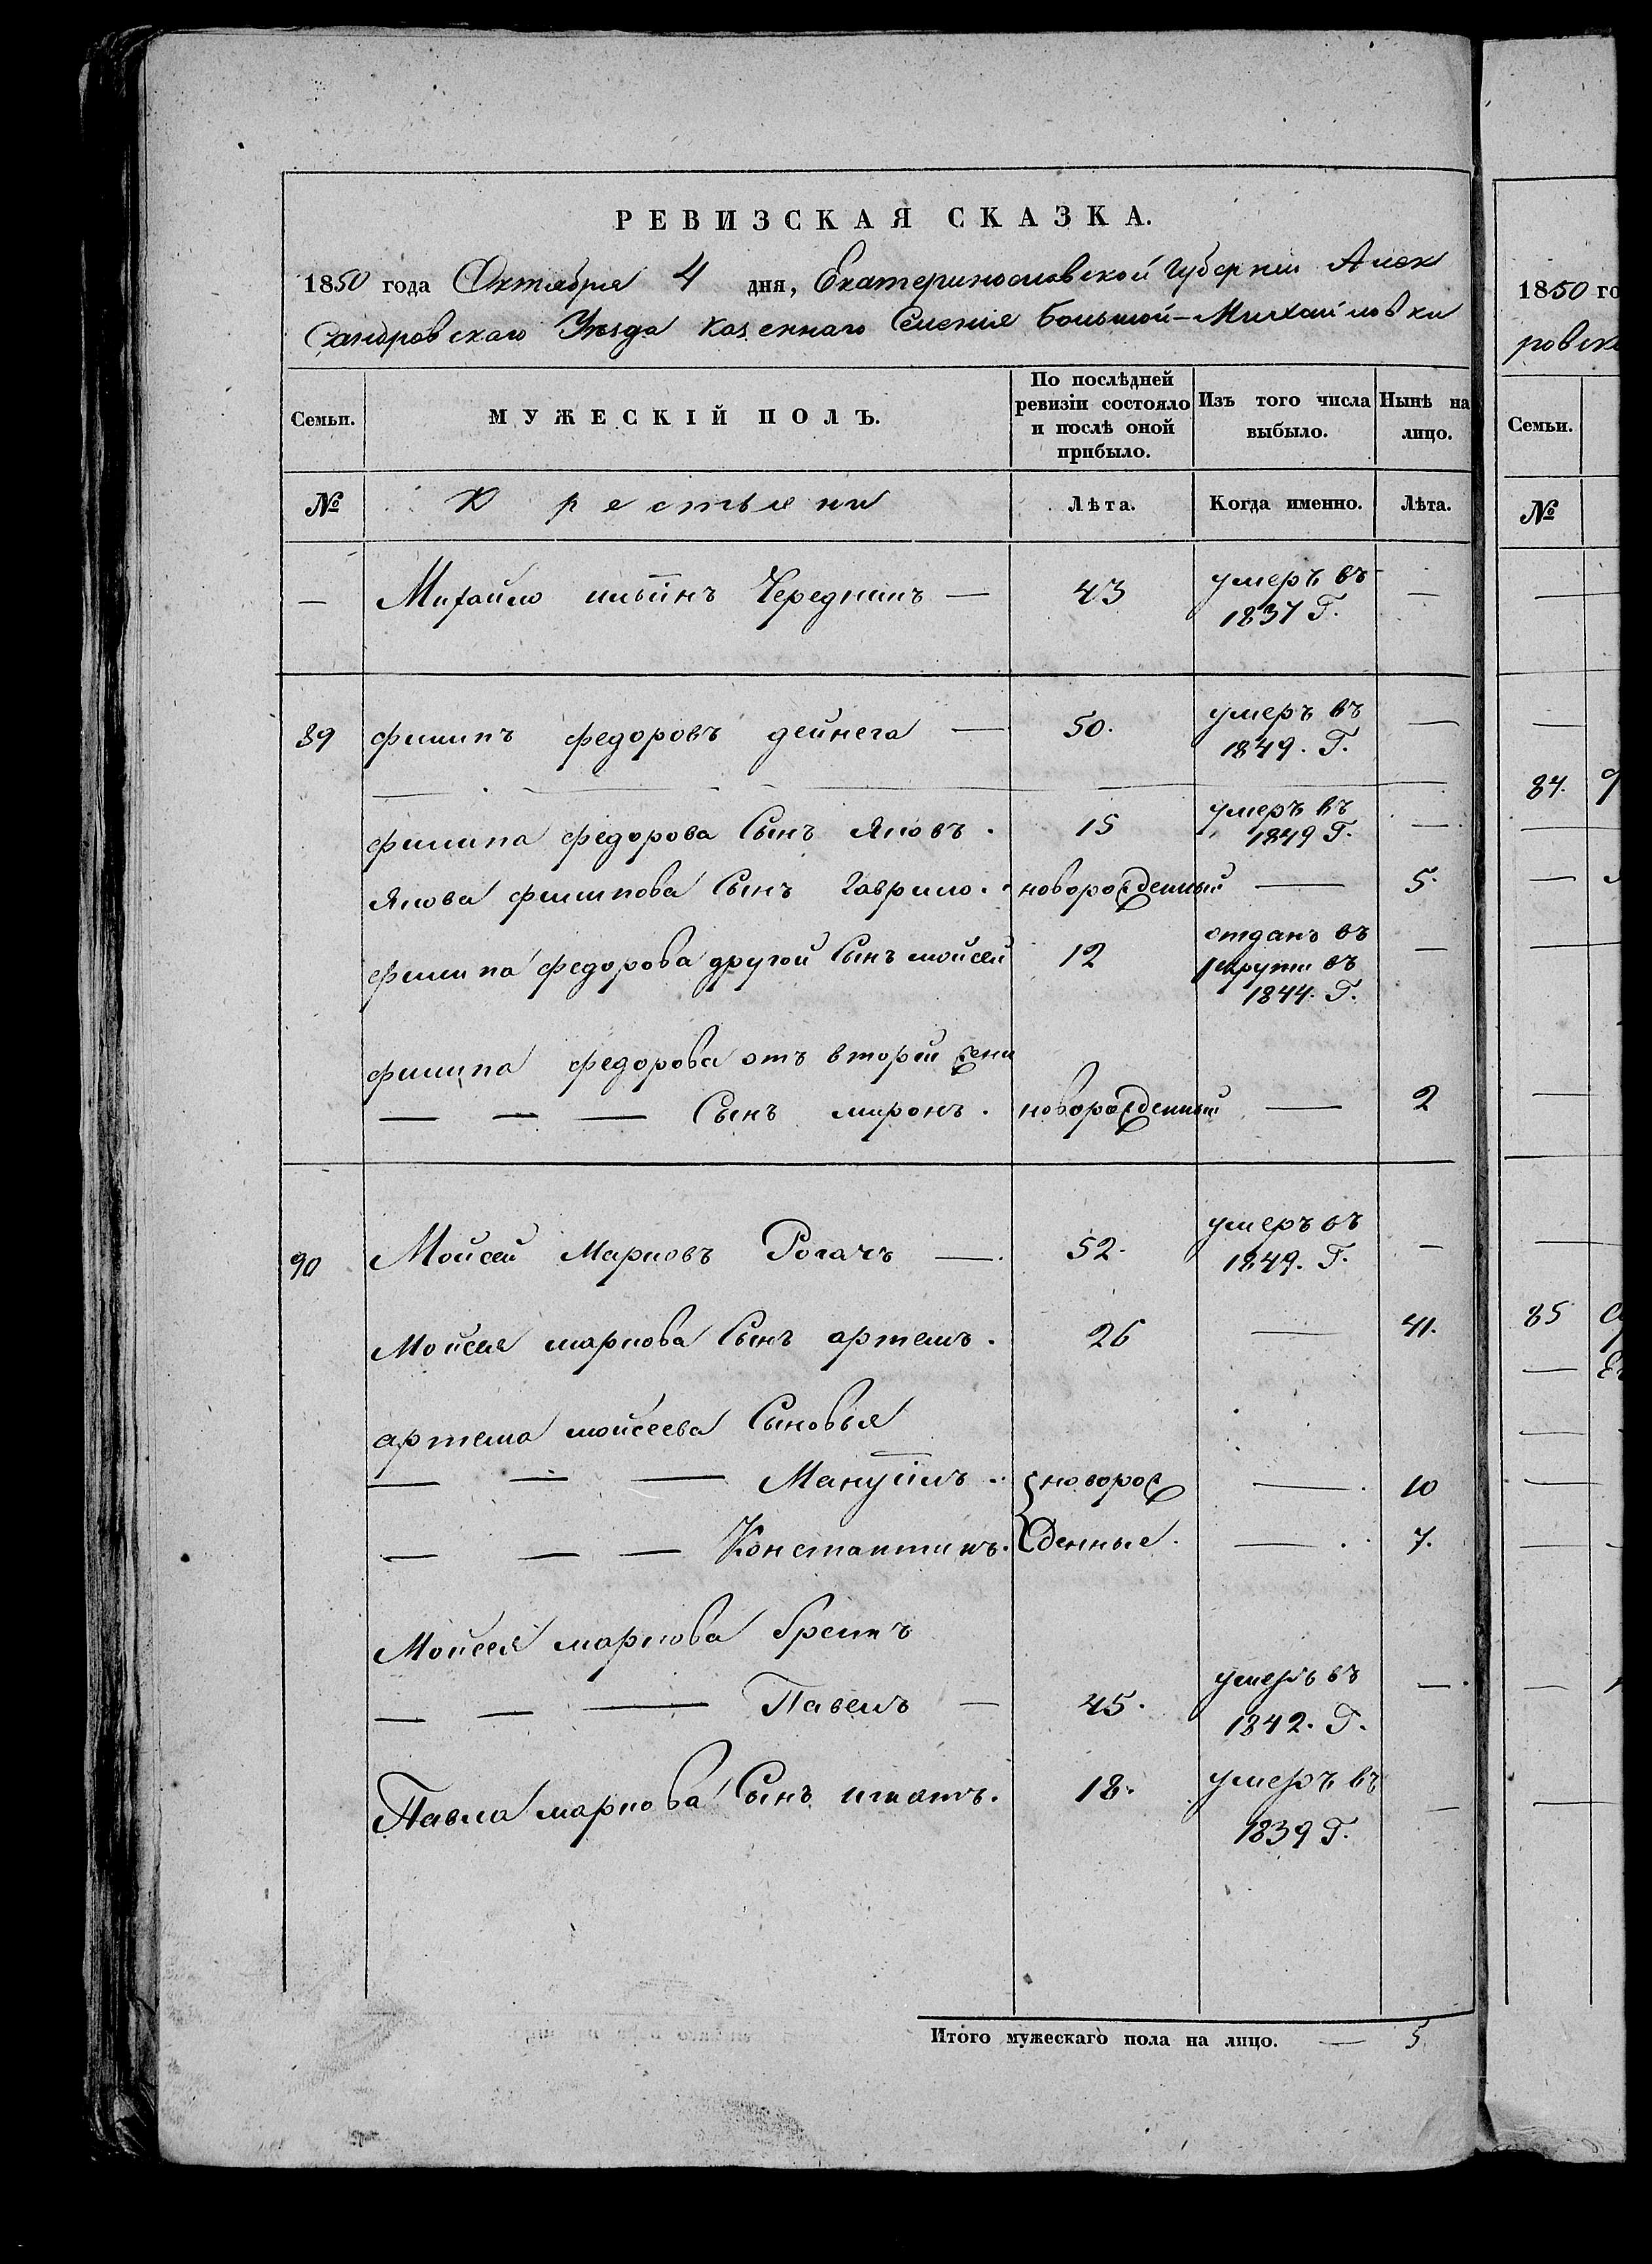 РЕВИЗСКАЯ СКАЗКА.
1850 года Октября 4 дня, Екатеринославской Губернiи Алек
сандровскаго Уѣзда казеннаго Селенiя Большой-Михайловки
Семьи. МУЖЕСКІЙ ПОЛЪ. По послѣдней ревизіи состояло и послѣ оной прибыло. Изъ того числа выбыло. Нынѣ на лицо.
№ Крестьяни Лѣта. Когда именно. Лѣта.
— Михайло ильiинъ Чередникъ — 43 умеръ въ 1837 Г. —
89 филипъ федоровъ дейнега — 50. умеръ въ 1849. Г. —
филипа федорова Сынъ Яковъ. 15 умеръ въ 1849 Г. —
Якова филипова Сынъ Гаврило. новорожденный — 5.
филипа федорова другой Сынъ мойсей 12 отданъ въ рекрути въ 1844. Г. —
филипа федорова отъ второй жени
— — — Сынъ миронъ. новорожденный — 2
90 Мойсей Марковъ Рогачъ —. 52. умеръ въ 1849. Г. —
Мойсея маркова Сынъ артемъ. 26 — 41.
артема мойсеева Сыновья
— — — Мануiилъ. новорож — 10
— — — Константинъ. жденные. — 7.
Мойсея маркова братъ
— — — Павелъ — 45. умеръ въ 1842. Г. —.
Павла маркова Сынъ игнатъ. 18. умеръ въ 1839 Г. —
Итого мужескаго пола на лицо. — 5
1850 го
ровск
Семьи.
№
84.
85